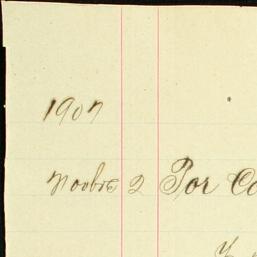 1907
Novbre 2 Por Ca